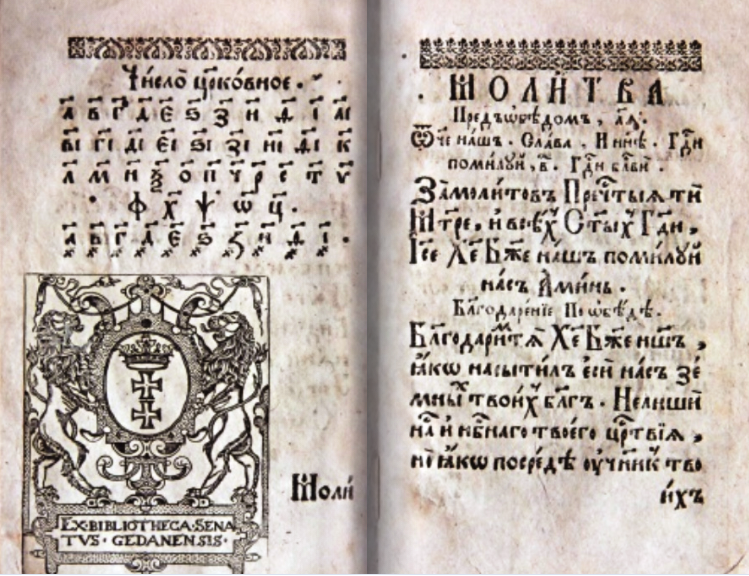 Число̀ цр҃ко́вное.
а҃ в҃ г҃ д҃ е҃ ѕ҃ з҃ и҃ ѳ҃ і҃ аі҃
ві҃ гі҃ ді҃ еі҃ ѕі҃ зі҃ иі҃ ѳі҃ к҃
л҃ м҃ н҃ ѯ҃ о҃ п҃ ч҃ р҃ с҃ т҃ ѵ҃
ф҃ х҃ ѱ҃ ѡ҃ ц҃.
҂а҃ ҂в҃ ҂г҃ ҂д҃ ҂е҃ ҂ѕ҃ ҂з҃ ҂и҃ ҂ѳ҃ ҂і҃.
EX·BIBLIOTHECA·SENA
TVS·GEDANENSIS·
Моли́
МОЛИ́ТВА
Предъѡбѣдомъ,
Ѿч҃е на́шъ. Сла́ва, И нн҃ѣ. Гд҃и
поми́луй, в҃. Гд҃и бл҃ви.
За мол҃итовъ Преч҃тыѧ ти
Мт҃ре, и всѣ́х Ст҃ы́х Гд҃и,
І҃се Х҃е Бж҃е на́шъ поми́луй
на́съ А҆ми́нь.
Бл҃годаре́нїе По ѡбѣ́дѣ.
Бл҃годари́мтѧ Х҃е Бж҃е на́шъ,
ꙗ҆́кѡ насы́тилъ есѝ на́съ зе
мны́х твои́х бл҃гъ. Нелиши́
на́ и нб҃наго твоего̀ цр҃твїѧ,
но̀ ꙗ҆́кѡ посредѐ оу҆ч҃ни́к тво
и́хъ